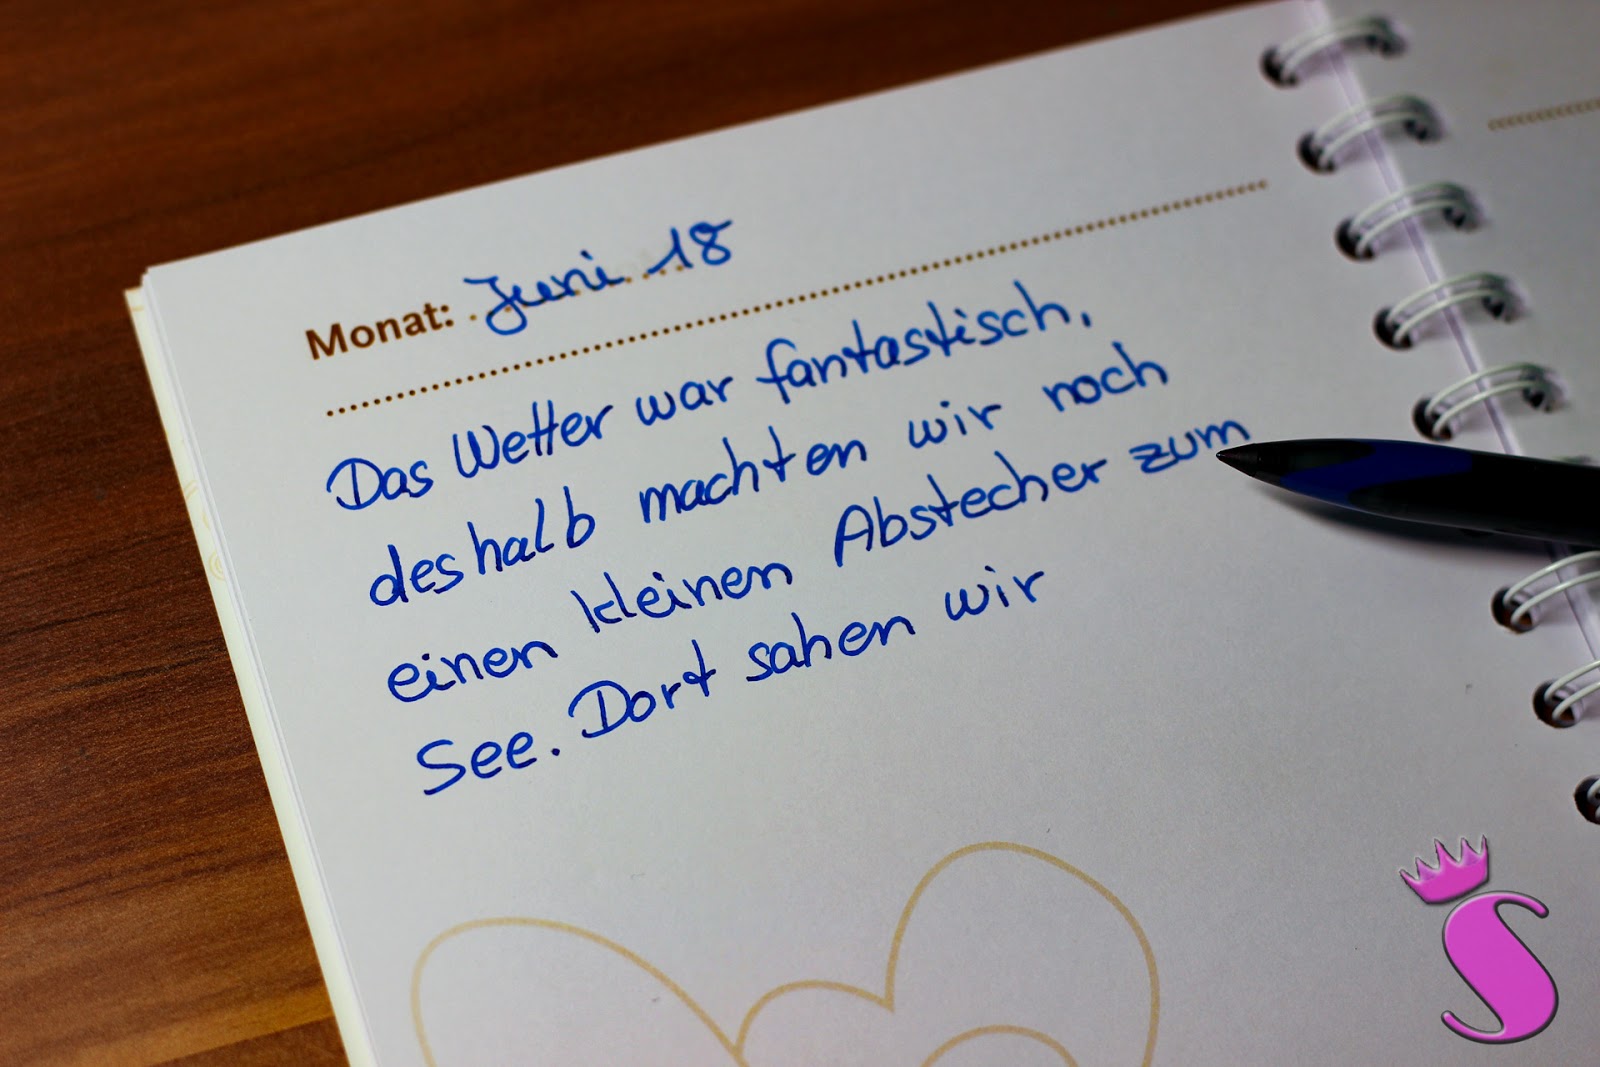 Monat: Juni 18
Das Wetter war fantastisch,
deshalb machten wir noch
einen kleinen Abstecher zum
See. Dort sahen wir
S